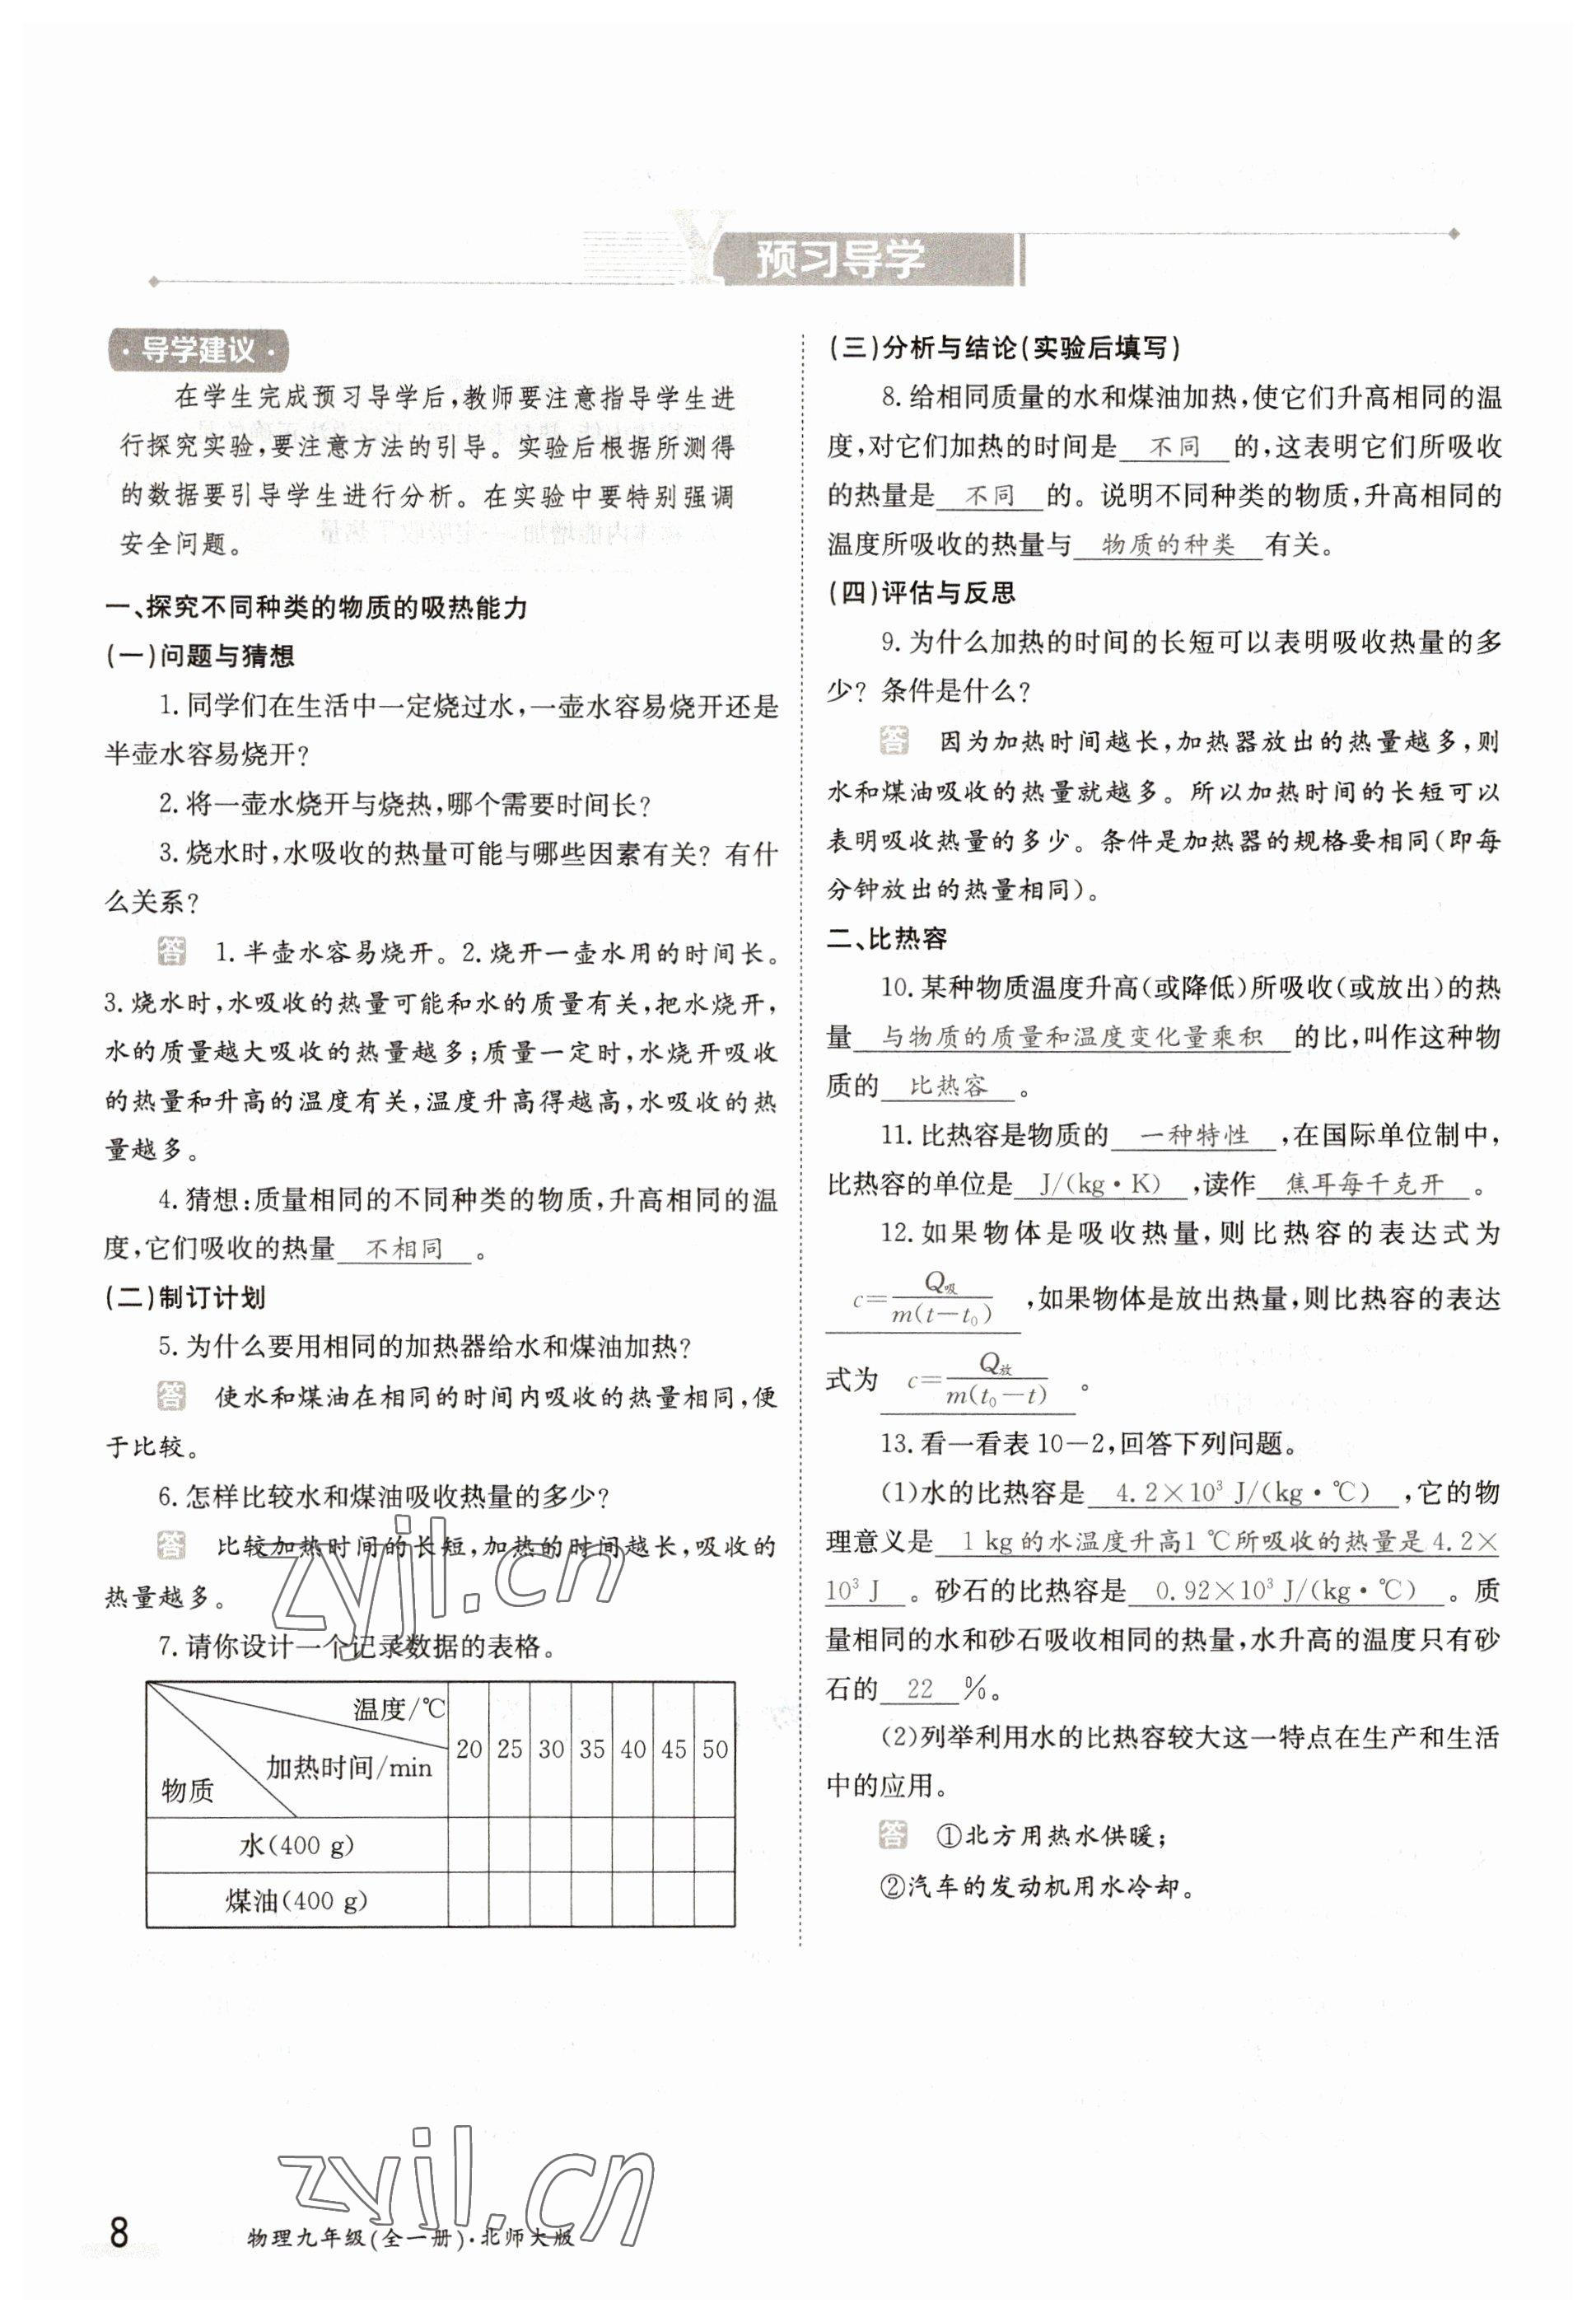 预习导学
·导学建议·
在学生完成预习导学后,教师要注意指导学生进
行探究实验,要注意方法的引导。实验后根据所测得
的数据要引导学生进行分析。在实验中要特别强调
安全问题。
一、探究不同种类的物质的吸热能力
(一)问题与猜想
1.同学们在生活中一定烧过水,一壶水容易烧开还是
半壶水容易烧开?
2.将一壶水烧开与烧热,哪个需要时间长?
3.烧水时,水吸收的热量可能与哪些因素有关?有什
么关系?
答 1.半壶水容易烧开。2.烧开一壶水用的时间长。
3.烧水时,水吸收的热量可能和水的质量有关,把水烧开,
水的质量越大吸收的热量越多;质量一定时,水烧开吸收
的热量和升高的温度有关,温度升高得越高,水吸收的热
量越多。
4.猜想:质量相同的不同种类的物质,升高相同的温
度,它们吸收的热量 不相同 。
(二)制订计划
5.为什么要用相同的加热器给水和煤油加热?
答 使水和煤油在相同的时间内吸收的热量相同,便
于比较。
6.怎样比较水和煤油吸收热量的多少?
答 比较加热时间的长短,加热的时间越长,吸收的
热量越多。
7.请你设计一个记录数据的表格。
温度/℃
加热时间/min
物质
20 25 30 35 40 45 50
水(400 g)
煤油(400 g)
(三)分析与结论(实验后填写)
8.给相同质量的水和煤油加热,使它们升高相同的温
度,对它们加热的时间是 不同 的,这表明它们所吸收
的热量是 不同 的。说明不同种类的物质,升高相同的
温度所吸收的热量与 物质的种类 有关。
(四)评估与反思
9.为什么加热的时间的长短可以表明吸收热量的多
少?条件是什么?
答 因为加热时间越长,加热器放出的热量越多,则
水和煤油吸收的热量就越多。所以加热时间的长短可以
表明吸收热量的多少。条件是加热器的规格要相同(即每
分钟放出的热量相同)。
二、比热容
10.某种物质温度升高(或降低)所吸收(或放出)的热
量 与物质的质量和温度变化量乘积 的比,叫作这种物
质的 比热容 。
11.比热容是物质的 一种特性 ,在国际单位制中,
比热容的单位是 J/(kg·K) ,读作 焦耳每千克开 。
12.如果物体是吸收热量,则比热容的表达式为
c=Q吸/m(t-t₀) ,如果物体是放出热量,则比热容的表达
式为 c=Q放/m(t₀-t) 。
13.看一看表10-2,回答下列问题。
(1)水的比热容是 4.2×10³ J/(kg·℃) ,它的物
理意义是 1 kg的水温度升高1 ℃所吸收的热量是4.2×
10³ J 。砂石的比热容是 0.92×10³ J/(kg·℃) 。质
量相同的水和砂石吸收相同的热量,水升高的温度只有砂
石的 22 %。
(2)列举利用水的比热容较大这一特点在生产和生活
中的应用。
答 ①北方用热水供暖;
②汽车的发动机用水冷却。
zyjl.cn
zyjl.cn
8 物理九年级(全一册)·北师大版